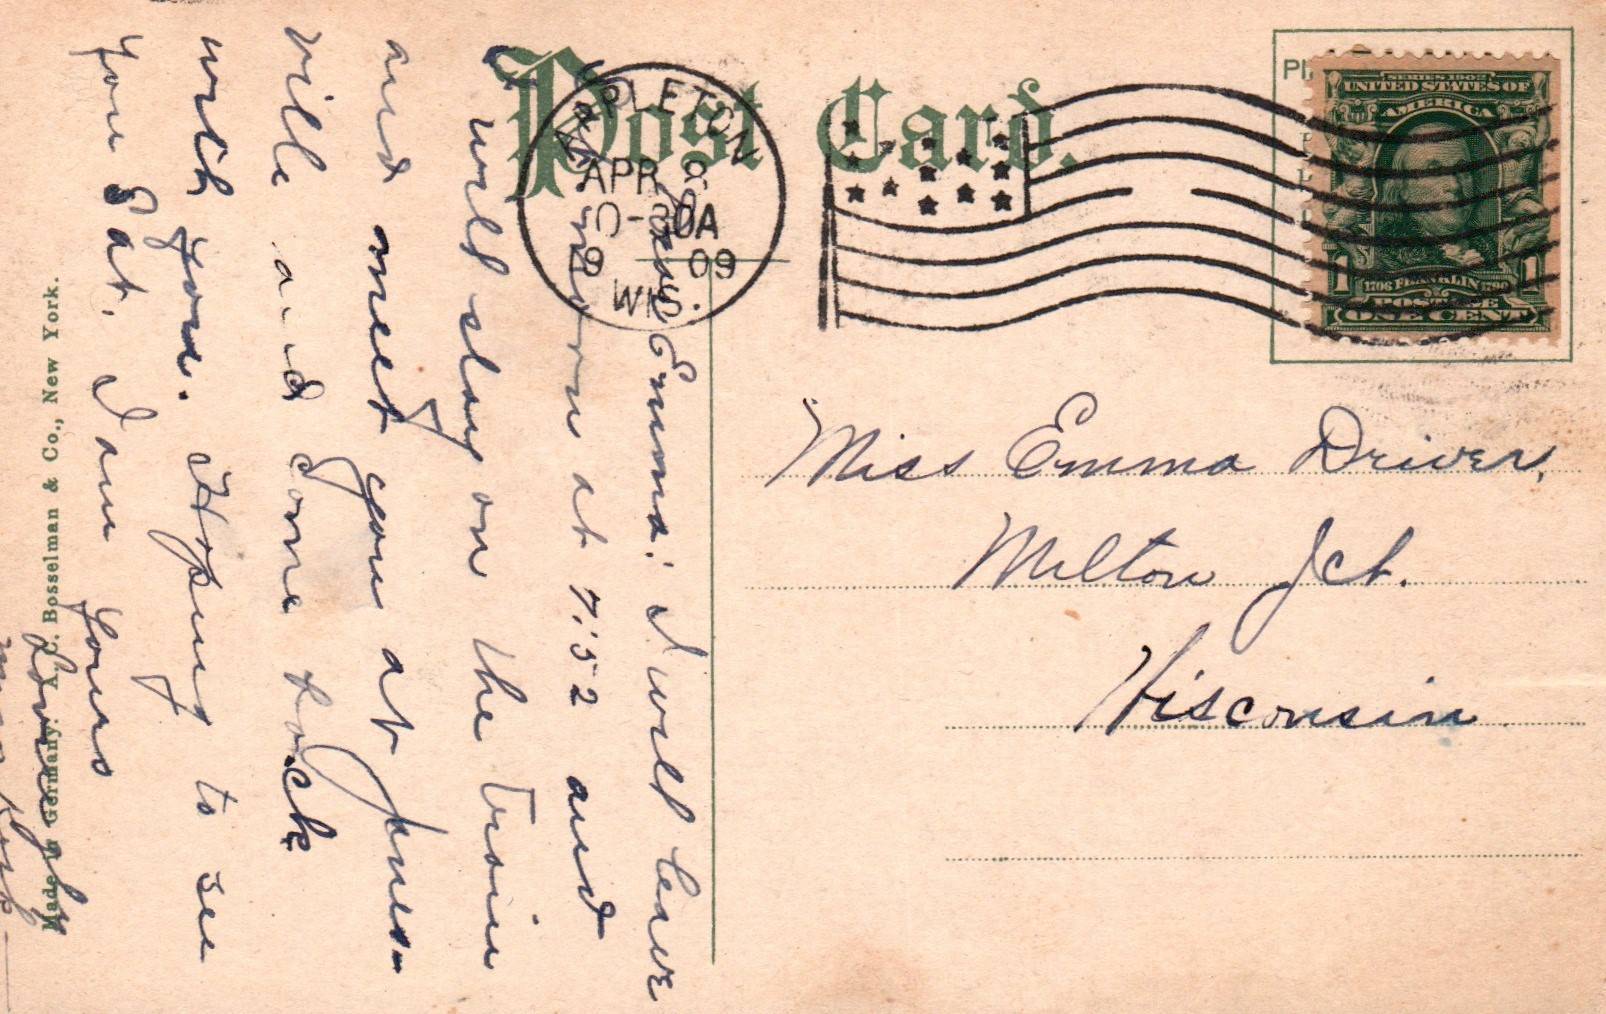 Post Card.
APPLETON
APR 8
30A
9 09
WIS.
SERIES 1902
UNITED STATES OF
AMERICA
1 1706 FRANKLIN 1790 1
POSTAGE
ONE CENT
Miss Emma Driver,
Milton Jct.
Wisconsin
Emma: I will leave
at 7:52 and
will stay on the train
and meet you at Janes-
ville and come back
with you. Hoping to see
you Sat. I am
Yours
Lovingly
Made in Germany. A. C. Bosselman & Co., New York.